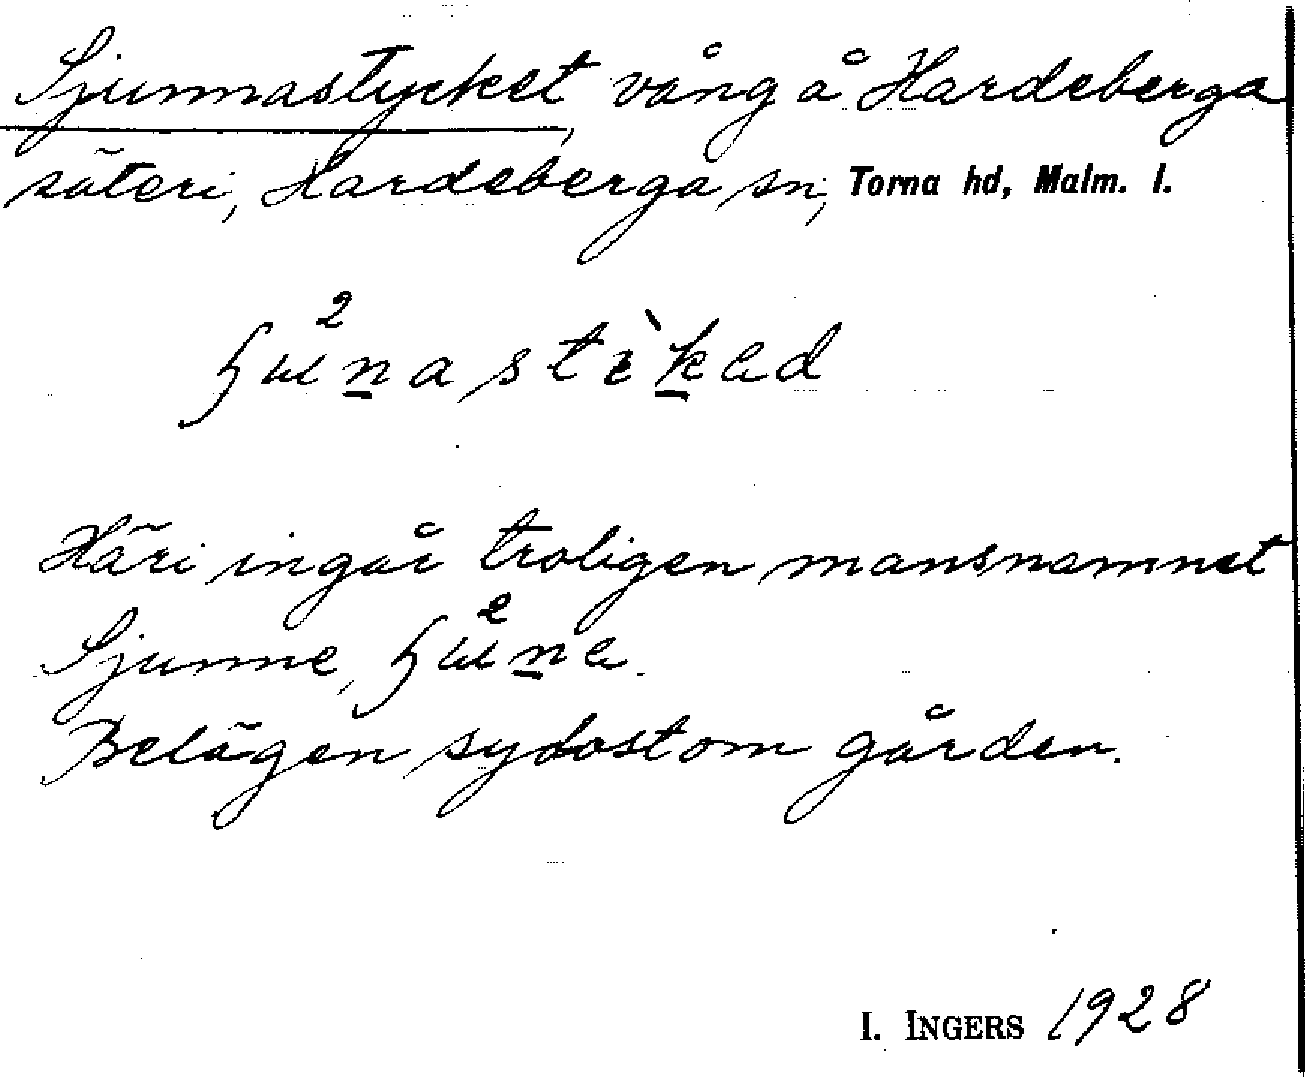 Sjunnastycket, vång å Hardeberga
säteri, Hardeberga sn, Torna hd, Malm. l.
Häri ingår troligen mansnamnet
Sjunne,
Belägen sydost om gården.
I. INGERS 1928